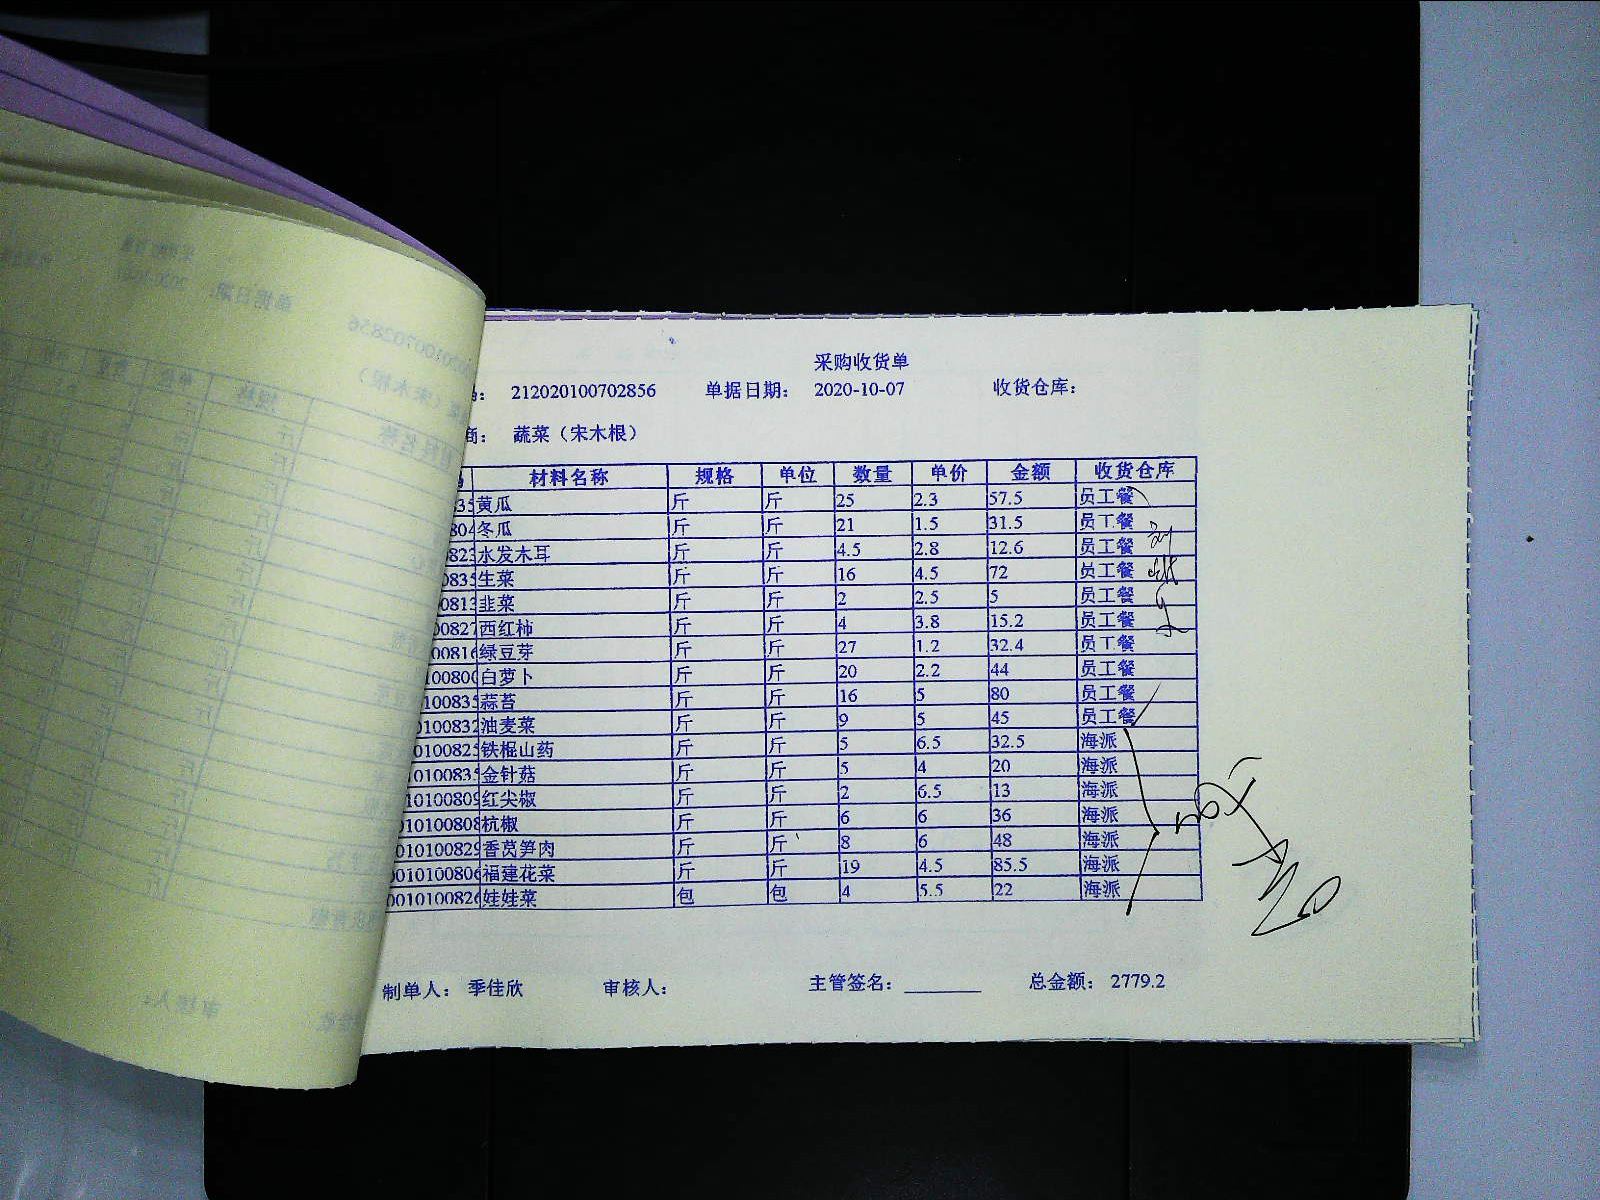 采购收货单
212020100702856 单据日期： 2020-10-07 收货仓库：
商： 蔬菜（宋木根）
材料名称 规格 单位 数量 单价 金额 收货仓库
835 黄瓜 斤 斤 25 2.3 57.5 员工餐
804 冬瓜 斤 斤 21 1.5 31.5 员工餐
823 水发木耳 斤 斤 4.5 2.8 12.6 员工餐
0835 生菜 斤 斤 16 4.5 72 员工餐
0813 韭菜 斤 斤 2 2.5 5 员工餐
00827 西红柿 斤 斤 4 3.8 15.2 员工餐
00816 绿豆芽 斤 斤 27 1.2 32.4 员工餐
100800 白萝卜 斤 斤 20 2.2 44 员工餐
100835 蒜苔 斤 斤 16 5 80 员工餐
0100832 油麦菜 斤 斤 9 5 45 员工餐
0100825 铁棍山药 斤 斤 5 6.5 32.5 海派
10100835 金针菇 斤 斤 5 4 20 海派
010100809 红尖椒 斤 斤 2 6.5 13 海派
010100808 杭椒 斤 斤 6 6 36 海派
010100829 香莴笋肉 斤 斤 8 6 48 海派
0010100806 福建花菜 斤 斤 19 4.5 85.5 海派
0010100826 娃娃菜 包 包 4 5.5 22 海派
制单人： 季佳欣 审核人： 主管签名： 总金额： 2779.2